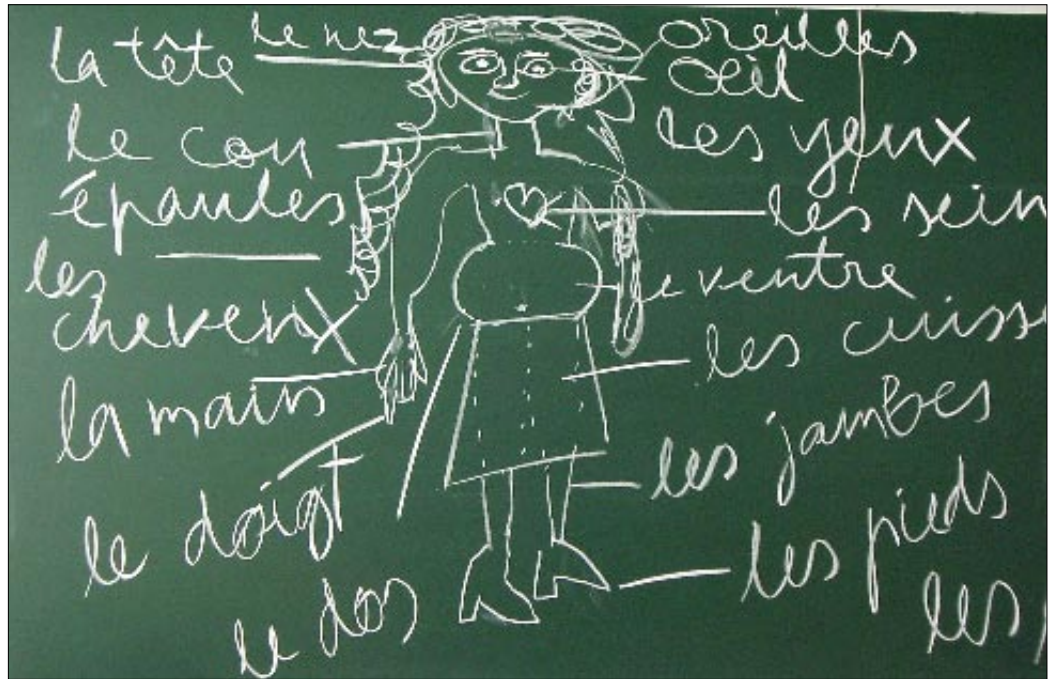 la tête
le nez
le cou
épaules
les
cheveux
la main
le doigt
le dos
oreilles
œil
les yeux
les sein
le ventre
les cuiss
les jambes
les pieds
les